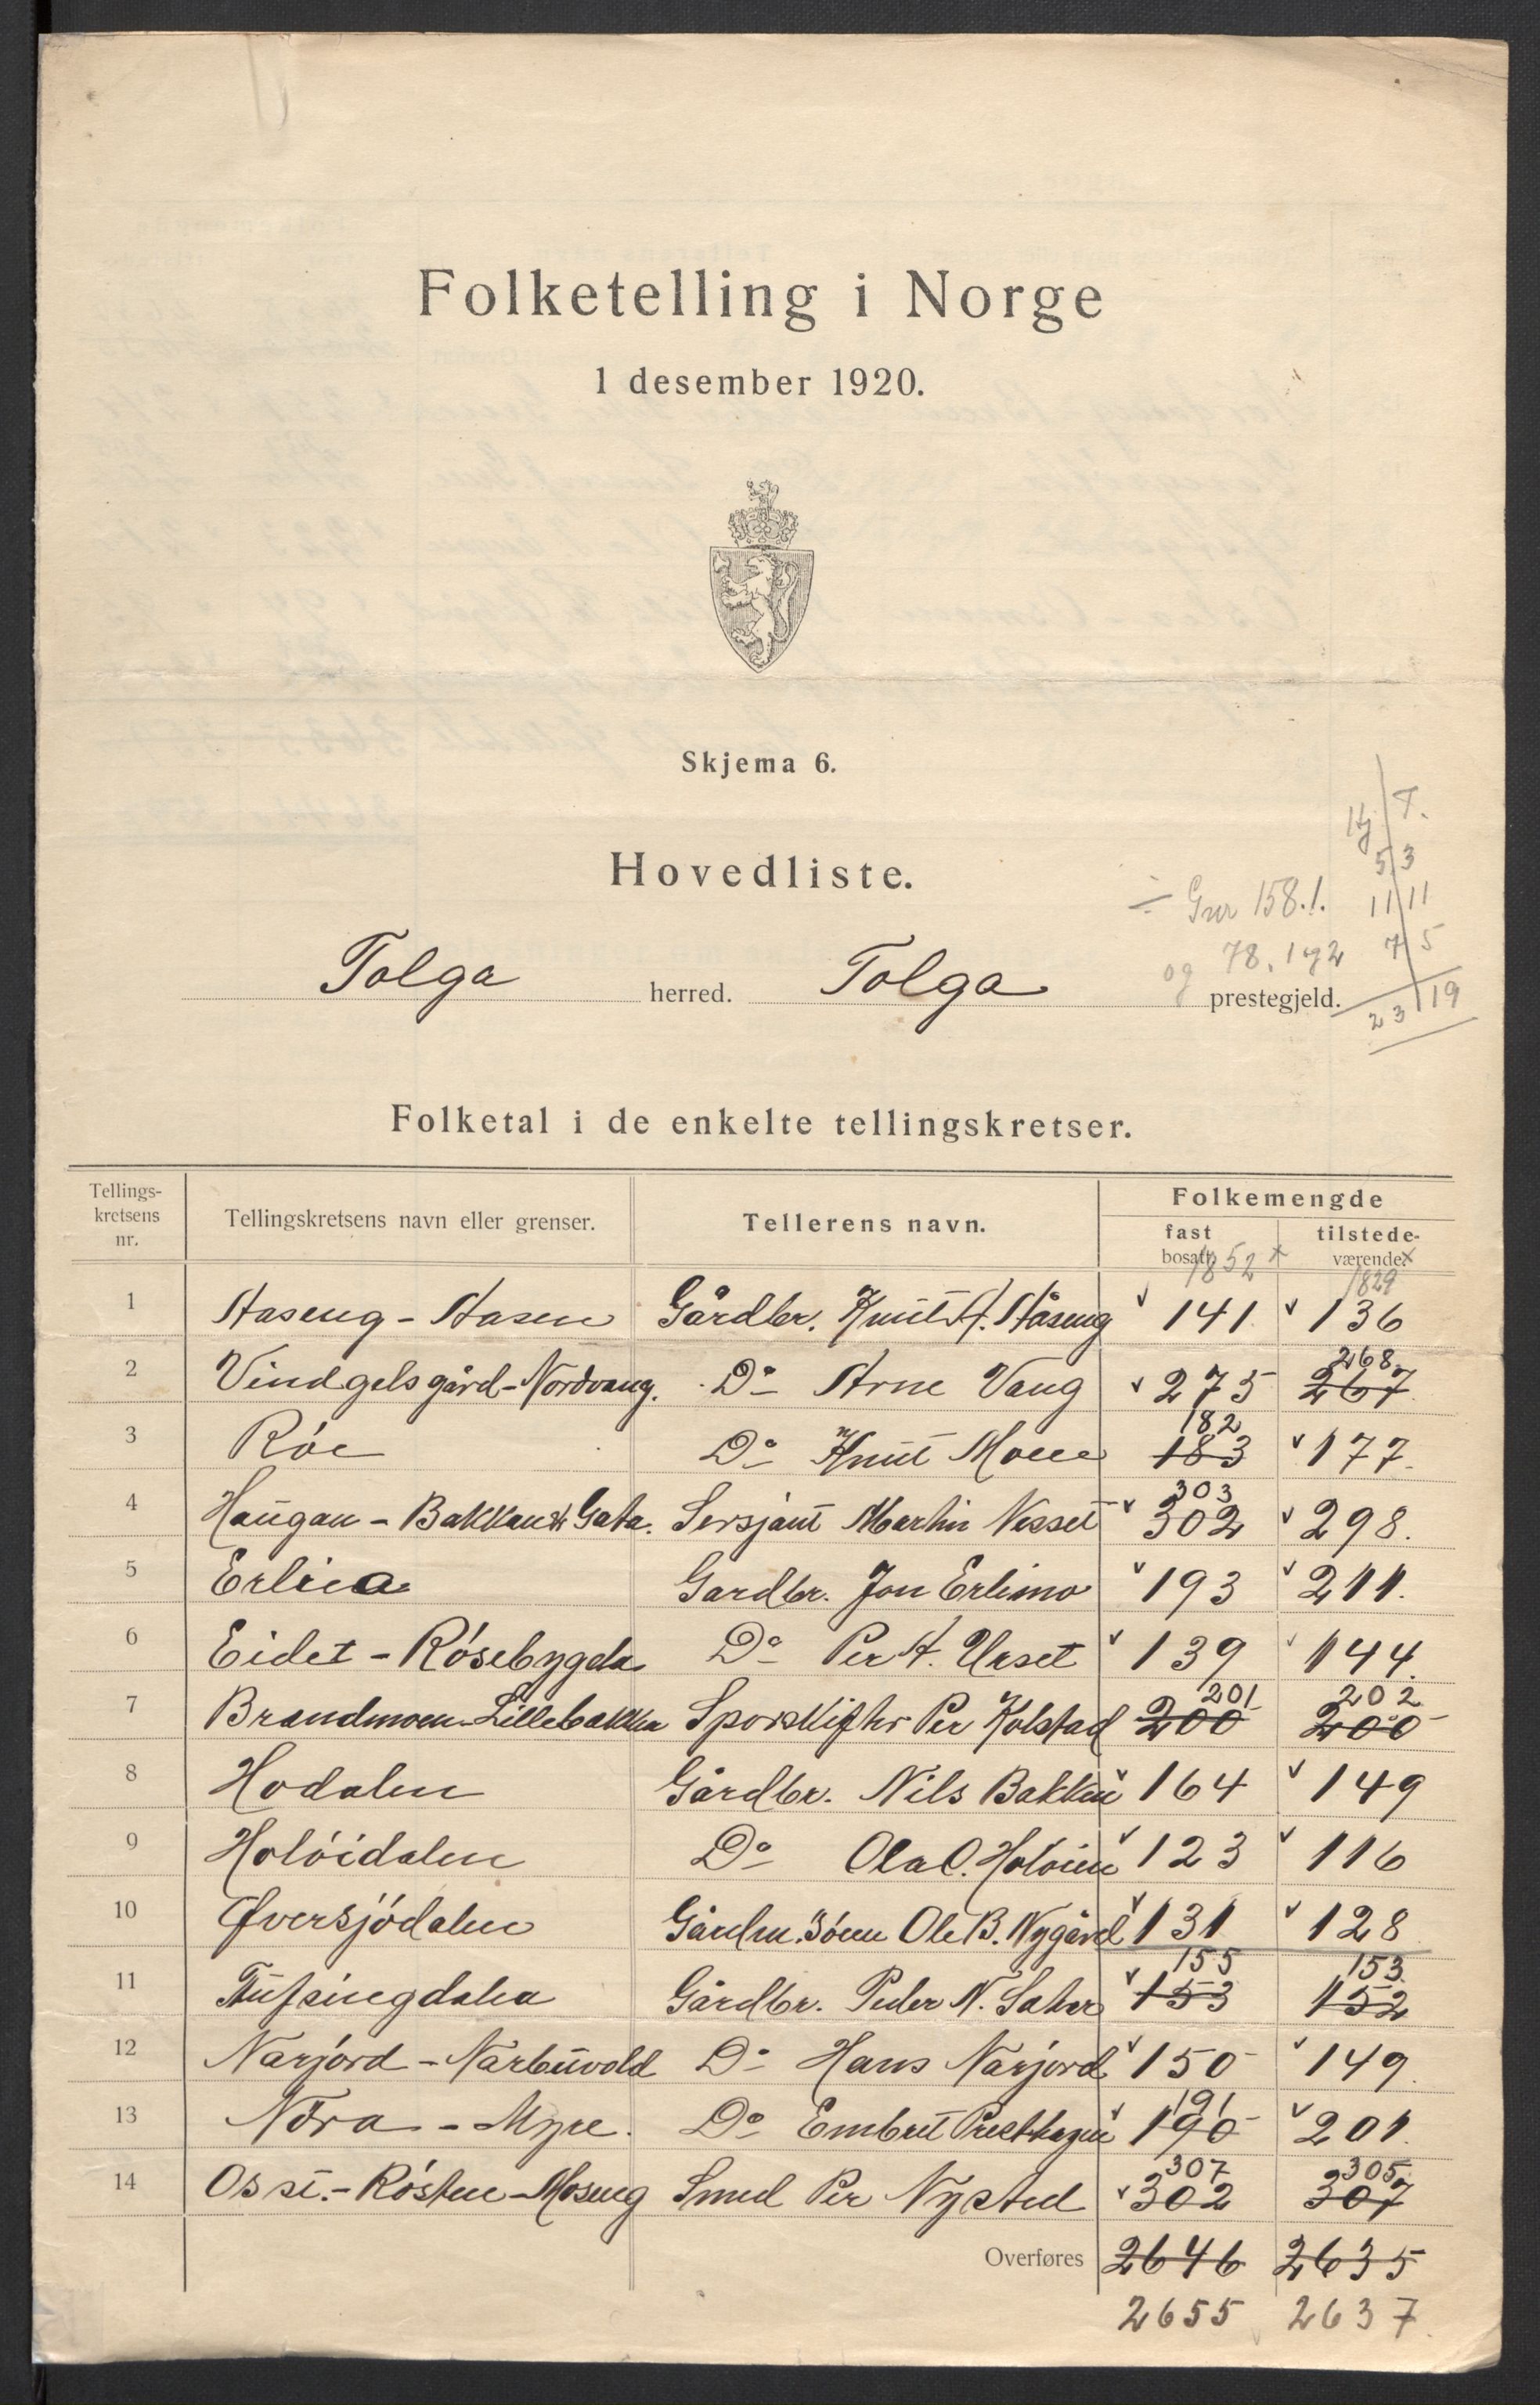 Folketelling i Norge
1 desember 1920.
Skjema 6.
Hj T.
5 3
Hovedliste.
÷ Gnr 158.1. 11 11
og 78.1 og 2 7 5
Tolga herred. Tolga prestegjeld. 23 19
Folketal i de enkelte tellingskretser.
Tellings-kretsens nr. Tellingskretsens navn eller grenser. Tellerens navn. Folkemengde
fast bosatt. tilstede-værende.
1852 x 1829 x
1 Aaseng - Aasen Gårdbr. Knut A. Åseng 141 136
2 Vindgelsgård - Nordvang. Do Arne Vang 275 267 268
3 Röe Do Knut Moen 183 182 177
4 Haugan - Bakkan & Gata. Sersjant Martin Nesset 302 303 298.
5 Erlien Gardbr. Jon Erlimo 193 211.
6 Eidet - Rösebygda Do Per A. Urset 139 144.
7 Brandmoen - Lillebakken Sporskifter Per Kolstad 200 201 200 202
8 Hodalen Gårdbr. Nils Bakken 164 149
9 Holöidalen Do Ola O. Holöien 123 116
10 Översjödalen Gårdm. sönn Ole B. Nygård 131 128
11 Tufsingdalen Gårdbr. Peder N. Sæter 153 155 152 153
12 Narjord - Narbuvold Do Hans Narjord 150 149.
13 Nöra - Myre. Do Embret Præsthagen 190 191 201
14 Os st. - Rösten - Moseng Smed Per Nysted 302 307 307 305
Overføres 2646 2635
2655 2637